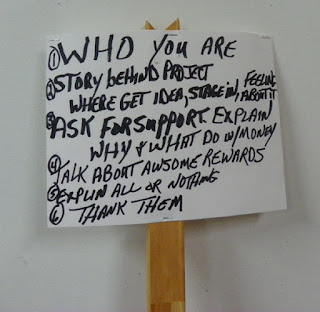 ① WHO YOU ARE
② STORY bEHIND PROJECT
WHERE GET IDEA, STAGE IN, FEELING ABOUT IT
③ ASK FOR SUPPORT. EXPLAIN
WHY & WHAT DO W/ MONEY
④ TALK ABOUT AWSOME REWARDS
⑤ EXPLIN ALL OR NOTHING
⑥ THANK THEM